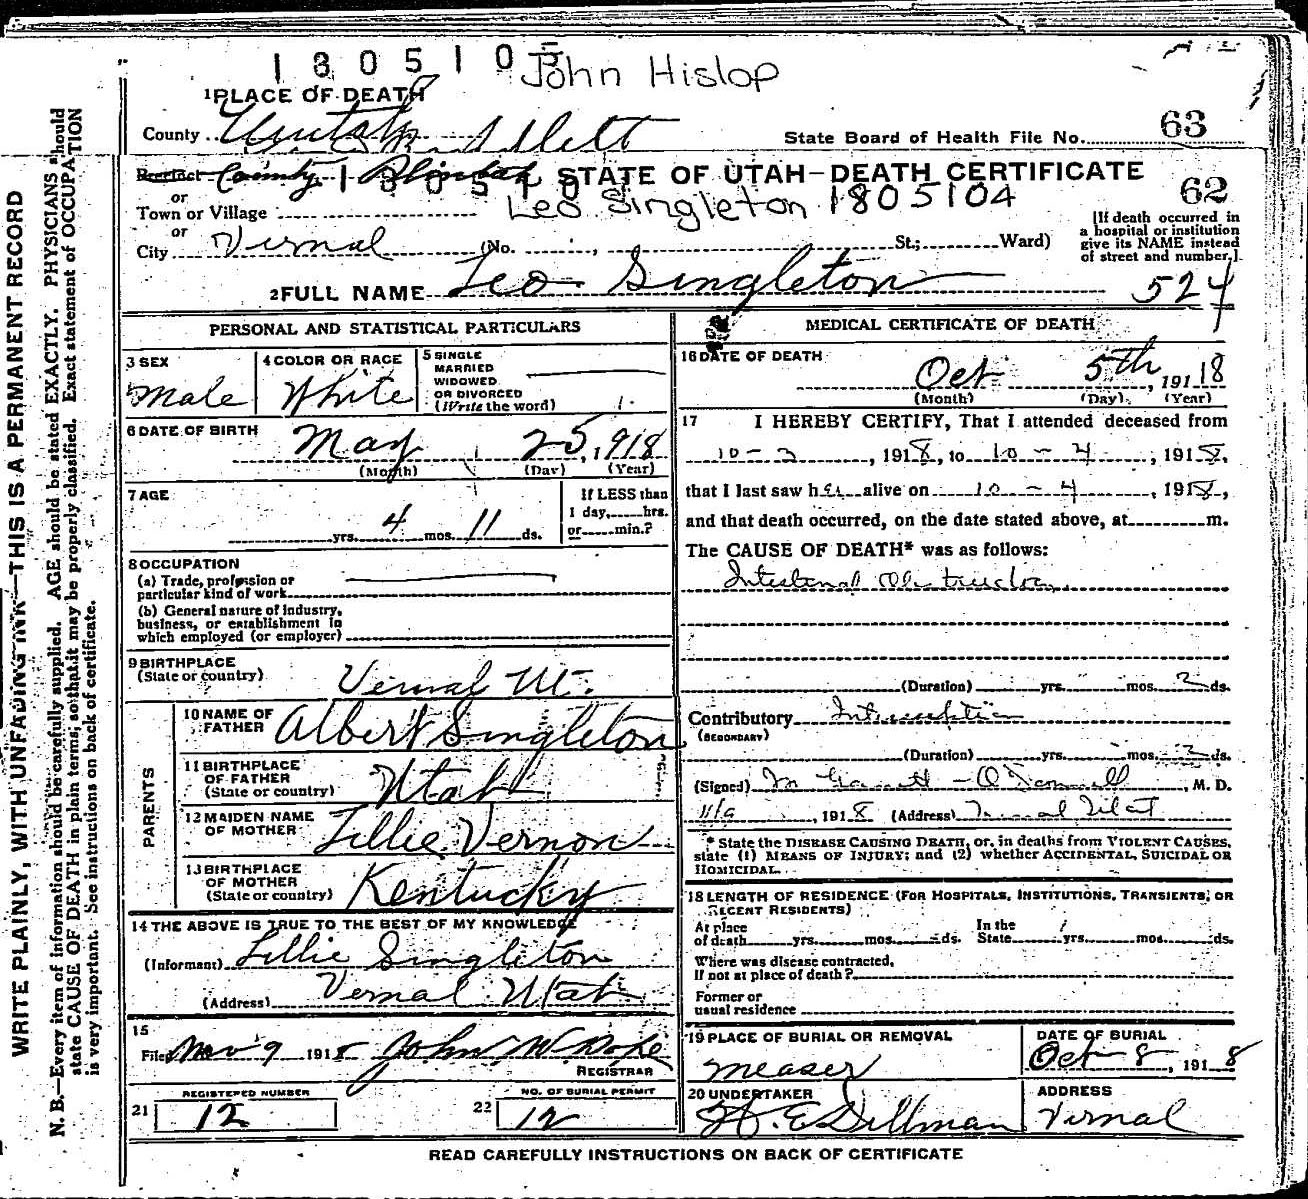 1805105
John Hislop
1 PLACE OF DEATH
County Uintah
State Board of Health File No. 63
Precinct County
STATE OF UTAH—DEATH CERTIFICATE
or
Town or Village
Leo Singleton 1805104
62
or
City Vernal (No. , St.; Ward)
[If death occurred in a hospital or institution give its NAME instead of street and number.]
2 FULL NAME Leo Singleton
524
PERSONAL AND STATISTICAL PARTICULARS
3 SEX
Male
4 COLOR OR RACE
White
5 SINGLE MARRIED WIDOWED OR DIVORCED (Write the word)
6 DATE OF BIRTH
May 25, 1918
(Month) (Day) (Year)
7 AGE
yrs. 4 mos. 11 ds.
If LESS than 1 day, hrs. or min.?
8 OCCUPATION
(a) Trade, profession or particular kind of work
(b) General nature of industry, business, or establishment in which employed (or employer)
9 BIRTHPLACE (State or country)
Vernal Ut.
PARENTS
10 NAME OF FATHER Albert Singleton
11 BIRTHPLACE OF FATHER (State or country) Utah
12 MAIDEN NAME OF MOTHER Lillie Vernon
13 BIRTHPLACE OF MOTHER (State or country) Kentucky
14 THE ABOVE IS TRUE TO THE BEST OF MY KNOWLEDGE
(Informant) Lillie Singleton
(Address) Vernal Utah
15
Filed Nov 9 1918 John W. Pope
REGISTRAR
21 REGISTERED NUMBER
12
22 NO. OF BURIAL PERMIT
12
MEDICAL CERTIFICATE OF DEATH
16 DATE OF DEATH
Oct 5th, 191 18
(Month) (Day) (Year)
17 I HEREBY CERTIFY, That I attended deceased from
10-3, 1918, to 10-4, 1918,
that I last saw her alive on 10-4, 1918,
and that death occurred, on the date stated above, at m.
The CAUSE OF DEATH* was as follows:
Intestinal Obstruction
(Duration) yrs. mos. 2 ds.
Contributory
(SECONDARY)
(Duration) yrs. mos. 2 ds.
(Signed) M. D.
11/9, 1918 (Address) Vernal
* State the DISEASE CAUSING DEATH, or, in deaths from VIOLENT CAUSES,
state (1) MEANS OF INJURY; and (2) whether ACCIDENTAL, SUICIDAL OR
HOMICIDAL.
18 LENGTH OF RESIDENCE (FOR HOSPITALS, INSTITUTIONS, TRANSIENTS, OR
RECENT RESIDENTS)
At place of death yrs. mos. ds. In the State yrs. mos. ds.
Where was disease contracted,
If not at place of death?
Former or
usual residence
19 PLACE OF BURIAL OR REMOVAL
Measer
DATE OF BURIAL
Oct 8, 1918
20 UNDERTAKER
E Dillman
ADDRESS
Vernal
READ CAREFULLY INSTRUCTIONS ON BACK OF CERTIFICATE
WRITE PLAINLY, WITH UNFADING INK—THIS IS A PERMANENT RECORD
N. B.—Every item of information should be carefully supplied. AGE should be stated EXACTLY. PHYSICIANS should
state CAUSE OF DEATH in plain terms, so that it may be properly classified. Exact statement of OCCUPATION
is very important. See instructions on back of certificate.